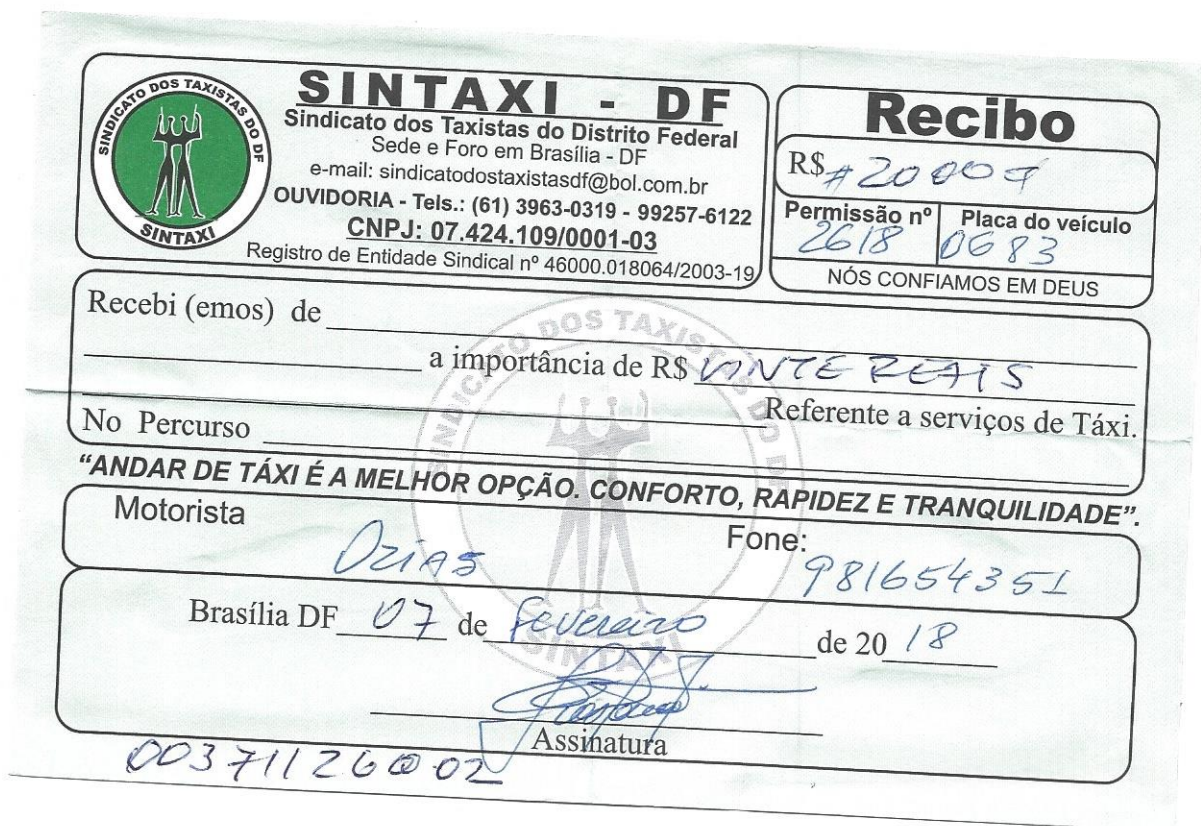 SINDICATO DOS TAXISTAS DO DF
SINTAXI
SINTAXI - DF
Sindicato dos Taxistas do Distrito Federal
Sede e Foro em Brasília - DF
e-mail: sindicatodostaxistasdf@bol.com.br
OUVIDORIA - Tels.: (61) 3963-0319 - 99257-6122
CNPJ: 07.424.109/0001-03
Registro de Entidade Sindical nº 46000.018064/2003-19
Recibo
R$ #2000
Permissão nº Placa do veículo
2618 0683
NÓS CONFIAMOS EM DEUS
Recebi (emos) de
a importância de R$ VINTE REAIS
Referente a serviços de Táxi.
No Percurso
“ANDAR DE TÁXI É A MELHOR OPÇÃO. CONFORTO, RAPIDEZ E TRANQUILIDADE”.
SINDICATO DOS TAXISTAS DO DF
SINTAXI
Motorista Fone:
OZIAS 981654351
Brasília DF 07 de Fevereiro de 20 18
Assinatura
00371126002